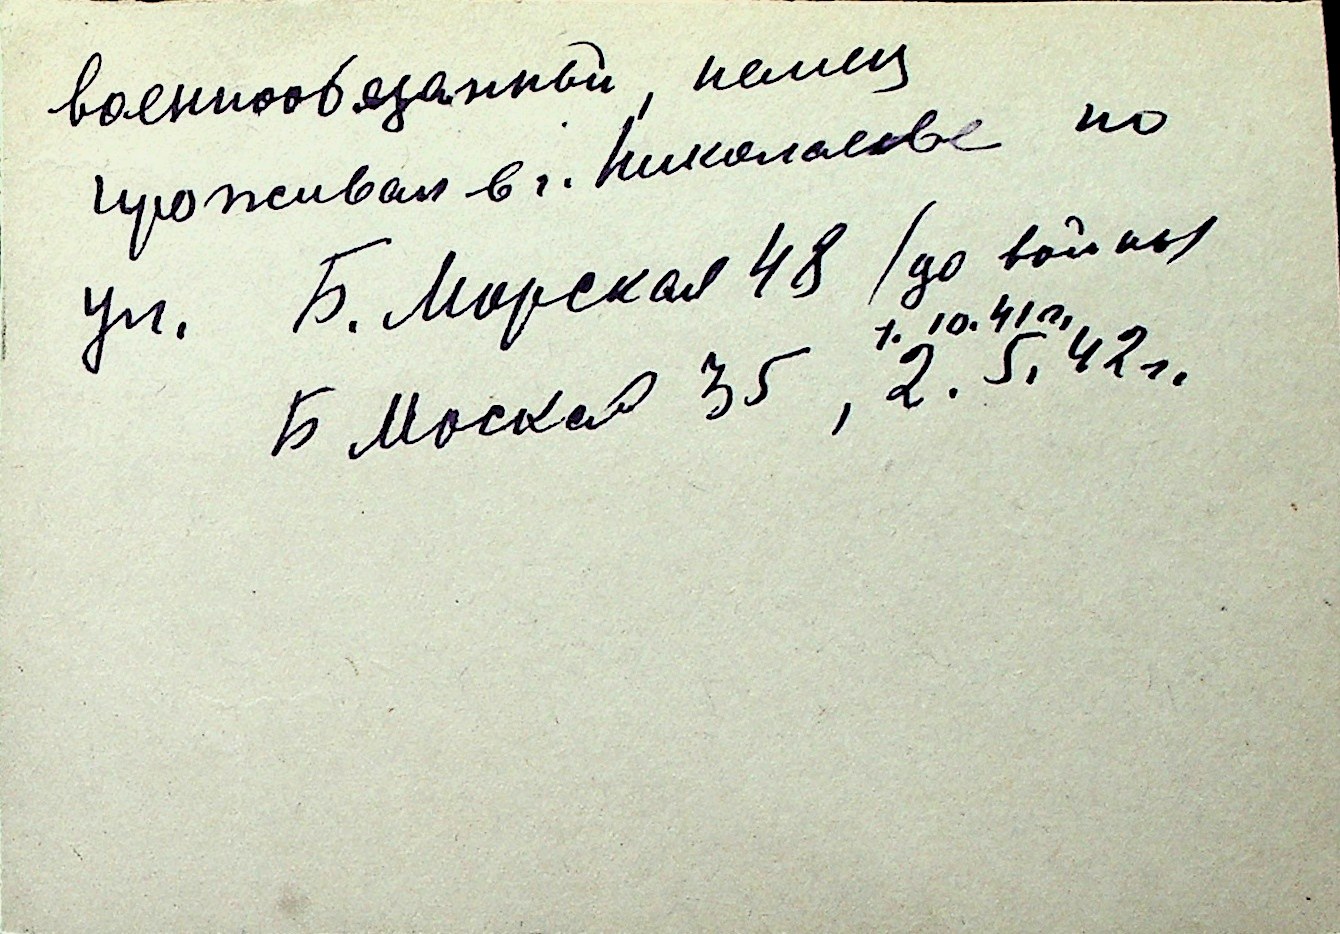 военнообязанный, немец
проживал в г. Николаеве по
ул. Б. Морская 48 /до войны
1. 10. 41 г.,
Б Моская 35, 2. 5. 42 г.